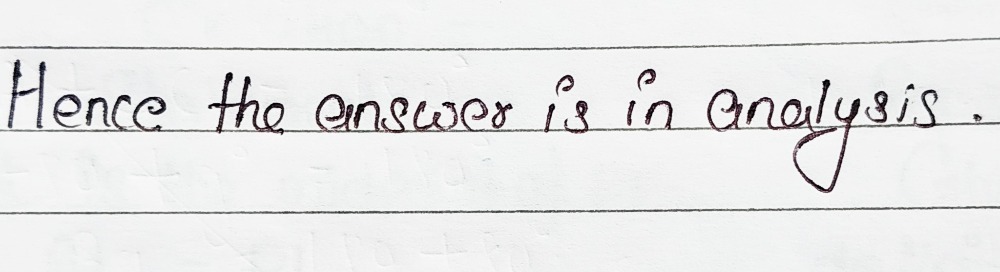 Hence the answer is in analysis.